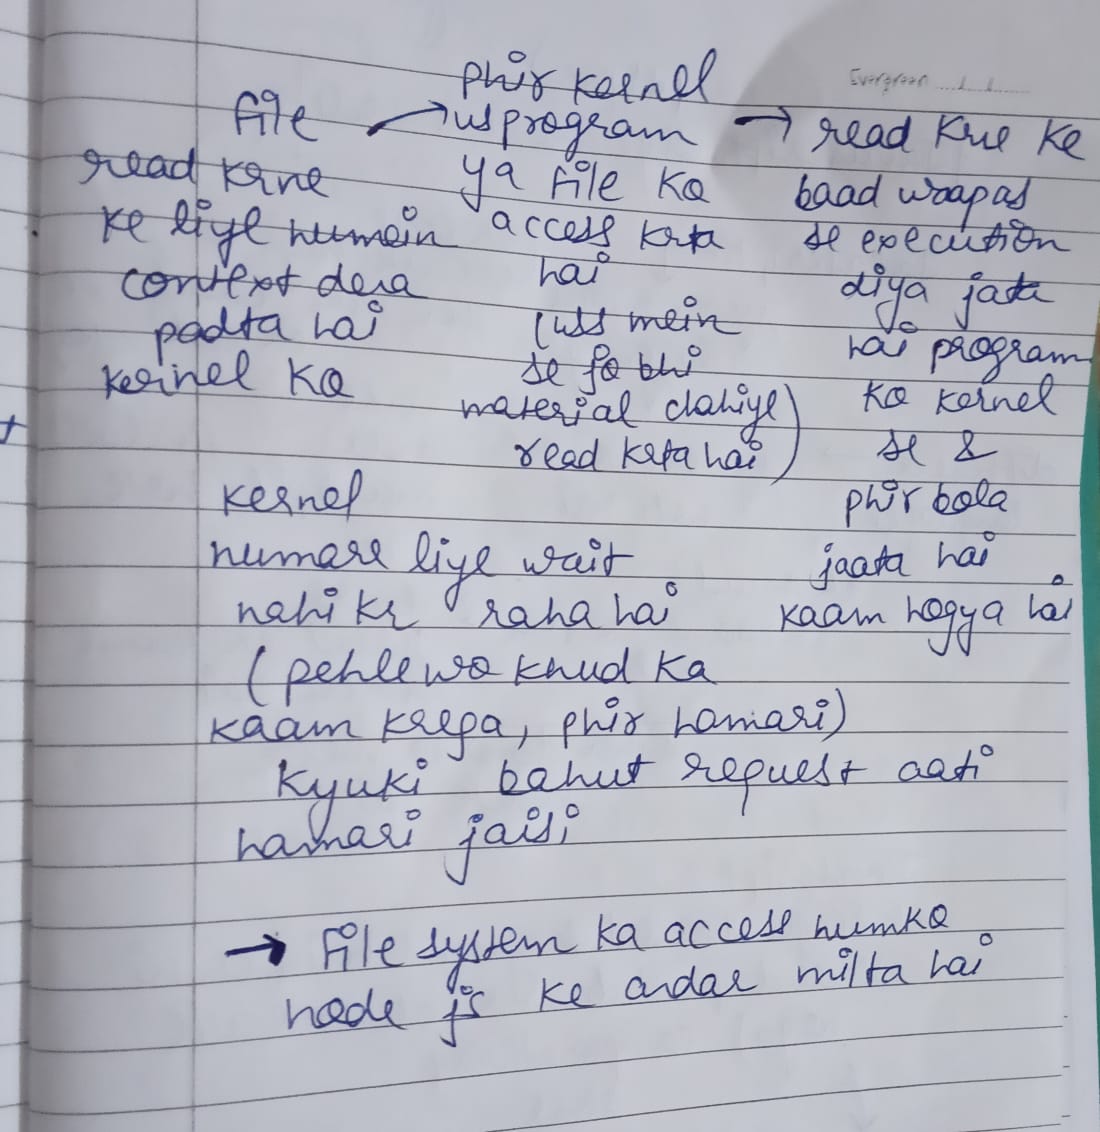 Evergreen
File
read krne
ke liye humein
context dena
padta hai
kerinel ko
→ phir kernel
us program
ya file ko
access krta
hai
(uss mein
se jo bhi
material chahiye
read krta hai)
→ read krne ke
baad waapas
se execution
diya jata
hai program
ko kernel
se &
phir bola
jaata hai
kaam hogya hai
kernel
humare liye wait
nahi kr raha hai
(pehle wo khud ka
kaam krega, phir hamari)
kyuki bahut request aati
hamari jaisi
→ File system ka access humko
node js ke andar milta hai